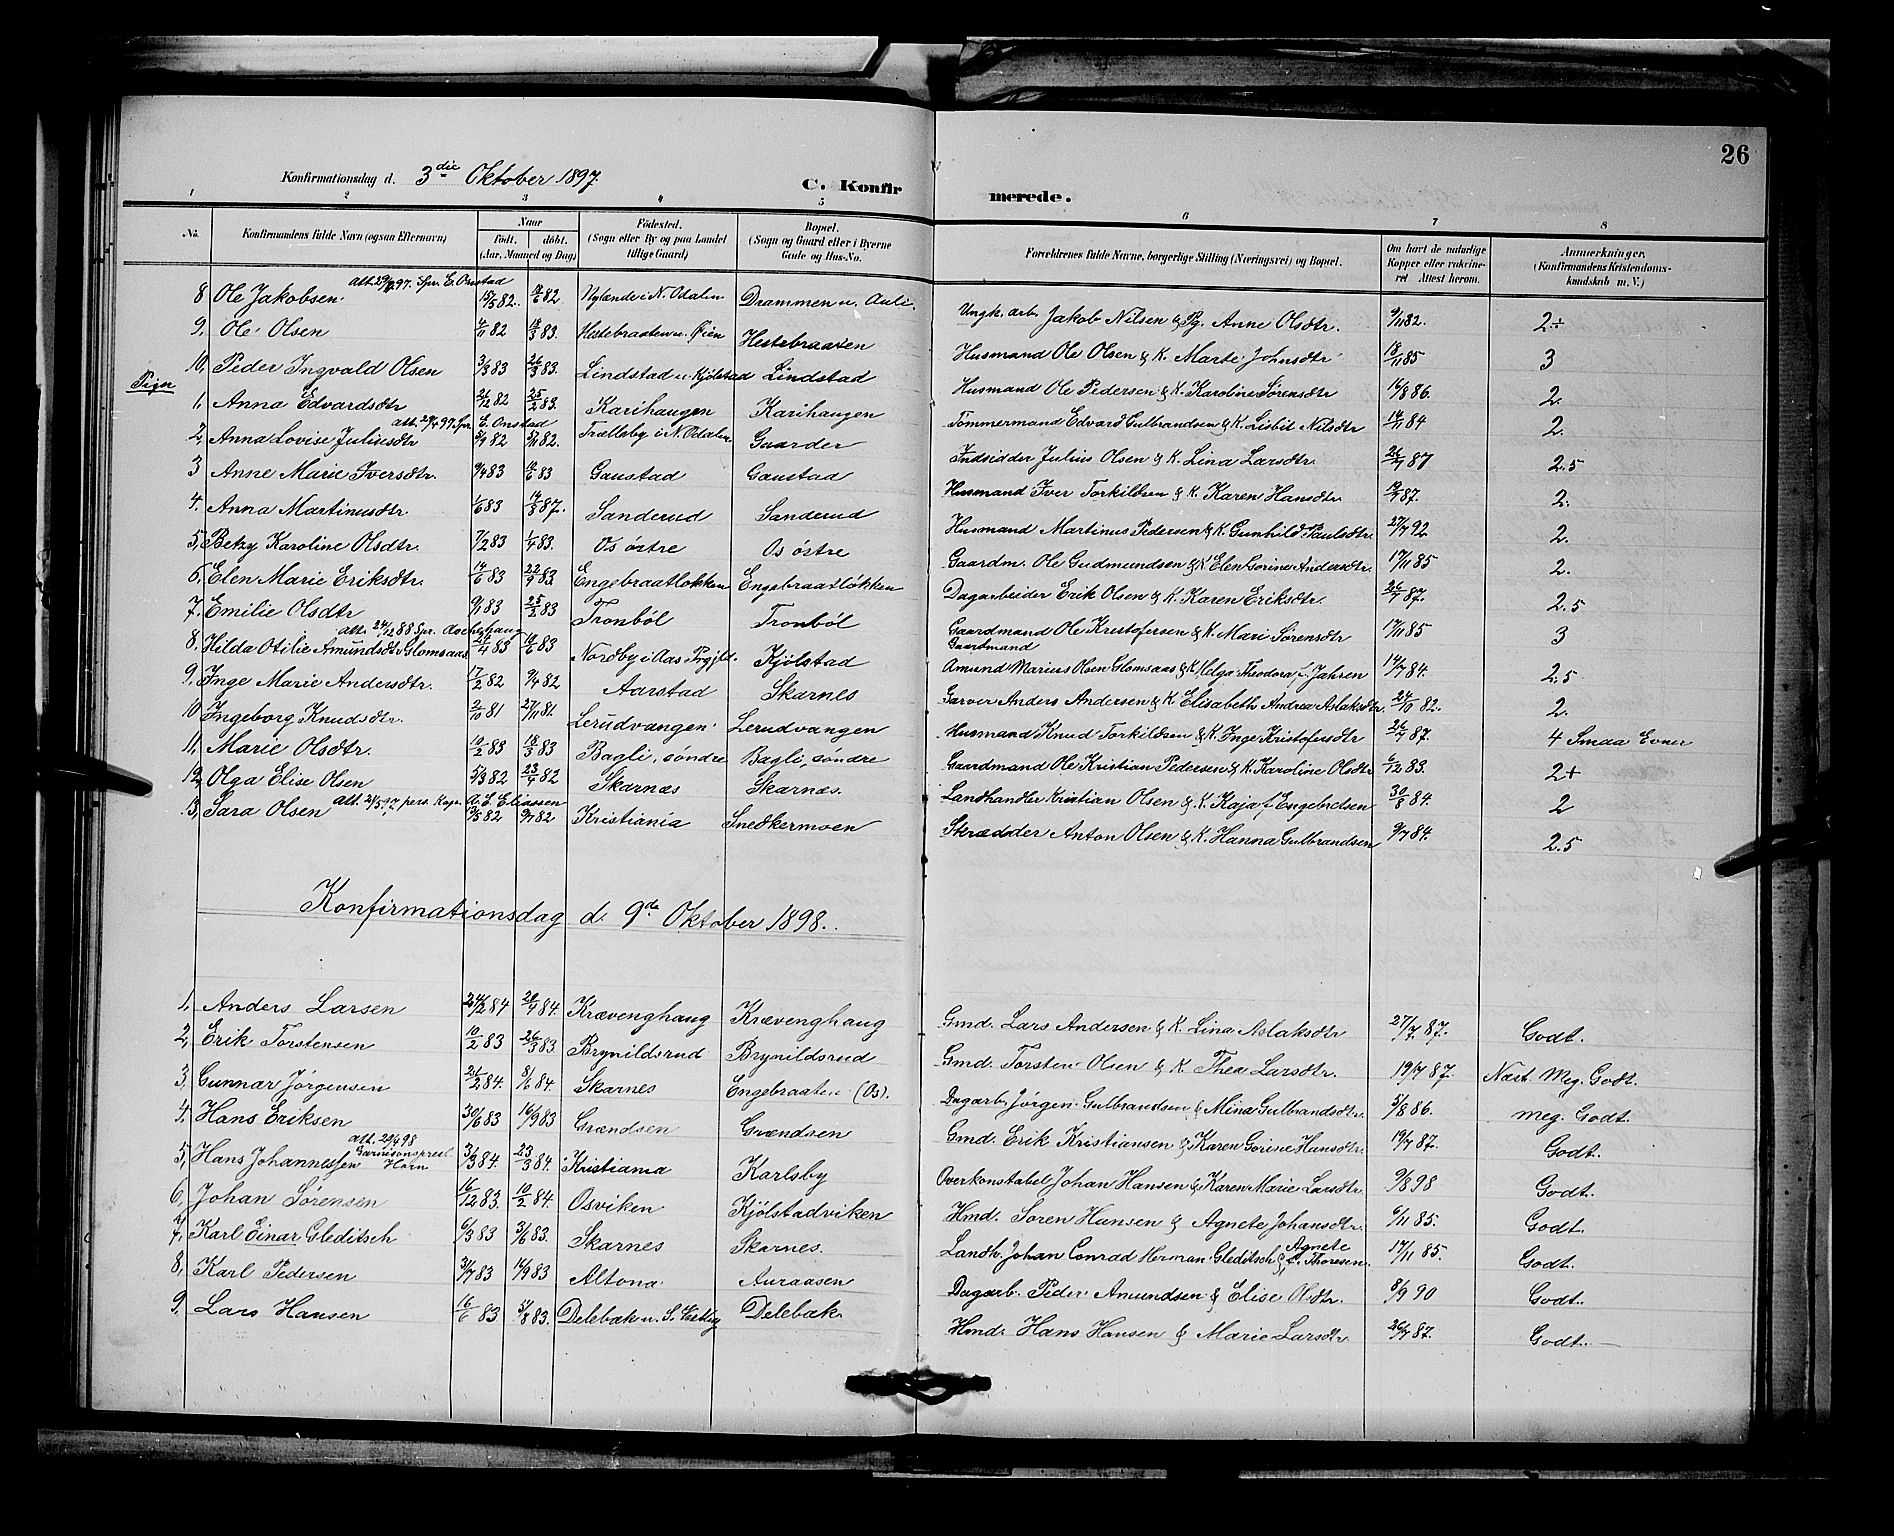 26
Konfirmationsdag d. 3die Oktober 1897.
C. Konfirmerede.
1 2 3 4 5 6 7 8
No. Konfirmandens fulde Navn (ogsaa Efternavn) Naar født. døbt. (Aar, Maaned og Dag) Fødested. (Sogn eller By og paa Landet tillige Gaard) Bopæl. (Sogn og Gaard eller i Byerne Gade og Hus-No. Forældrenes fulde Navne, borgerlige Stilling (Næringsvei) og Bopæl. Om havt de naturlige Kopper eller vaccineret Attest herom. Anmerkninger. (Konfirmandens Kristendomskundskab m. V.)
8 Ole Jakobsen. Spr. E. Onstad 82. 82 Nylænde i N. Odalen Drammen u. Auli Ungk. arb. Jakob Nilsen & Pg. Anne Olsdtr. 9/11 82. 2÷
9, Ole Olsen 82 83. Hestebraaten u. Øien Hestebraaten Husmand Ole Olsen & K. Marte Johnsdtr 18/11 85 3
10, Peder Ingvald Olsen 3/3 83 26/3 83. Lindstad u. Kjølstad Lindstad Husmand Ole Pedersen & K. Karoline Sørensdtr 16/8 86. 2.
Piger
1, Anna Edvardsdtr 26/12 82 25/2 83. Karihaugen Karihaugen Tømmermand Edvard Gulbrandsen & K. Lisbit Nilsdtr 84 2.
2, Anna Lovise Juliusdtr att. 29/4 97 Spr. E. Onstad 82 82. Trøllsby i N. Odalen Gaarder Indsidder Julius Olsen & K. Lina Larsdtr. 26/7 87 2.5
3 Anne Marie Iversdtr. 9/4 83 83 Gaustad Gaustad Husmand Iver Torkildsen & K. Karen Hansdtr 19/7 87. 2.
4. Anna Martinusdtr. 1/6 83 14/3 87. Sanderud Sanderud Husmand Martinus Pedersen & K. Gunhild Paulsdtr. 27/7 92 2.
5, Betzy Karoline Olsdtr. 7/2 83 1/4 83. Os østre Os østre Gaardm. Ole Gudmundsen & K. Elen Sorine Andersdtr. 17/11 85 2.
6, Elen Marie Eriksdtr. 14/6 83 22/9 83. Engebraatløkken Engebraatløkken Dagarbeider Erik Olsen & K. Karen Eriksdtr. 26/7 87. 2.5
7. Emilie Olsdtr 9/1 83 25/3 83 Tronbøl Tronbøl Gaardmand Ole Kristofersen & K. Mari Sørensdtr 17/11 85 3
8, Hilda Otilie Amundsdtr Glomsaas att. 24/12 88 Spr. 83 10/6 83 Nordby i Aas Prgjld. Kjølstad Gaardmand Amund Marius Olsen Glomsaas & K. Helga Theodora f. Jahren 14/7 84. 2.5
9, Inge Marie Andersdtr. 17/2 82 9/4 82 Aarstad Skarnes Garver Anders Andersen & K. Elisabeth Andrea Aslaksdtr. 24/10 82. 2.
10 Ingeborg Knudsdtr. 2/10 81 27/11 81. Lerudvangen. Lerudvangen Husmand Knud Torkildsen & K. Inge Kristofersdtr 26/7 87. 4 Smaa Evner
11, Marie Olsdtr. 10/2 83 18/3 83 Bagli, søndre Bagli, søndre Gaardmand Ole Kristian Pedersen & K. Karoline Olsdtr 6/12 83. 2+
12, Olga Elise Olsen 5/3 82 82 Skarnæs Skarnæs. Landhandler Kristian Olsen & K. Kaja f. Engebretsen 30/8 84. 2
13, Sara Olsen att. 2/5 97, pers. Kap. A. E. Eliassen 82 82 Kristiania Snedkermoen Skrædder Anton Olsen & K. Hanna Gulbrandsen 9/7 84. 2.5
Konfirmationsdag d. 9de Oktober 1898.
1, Anders Larsen 24/2 84 20/4 84. Krævenghaug Krævenghaug Gmd. Lars Andersen & K. Lina Aslaksdtr 27/7 87. Godt.
2, Erik Torstensen 10/2 83 26/3 83 Brynildsrud Brynildsrud Gmd. Torsten Olsen & K. Thea Larsdtr. 19/7 87. Næst. Meg. Godt.
3, Gunnar Jørgensen 21/2 84. 8/6 84. Skarnes Engebraaten (Os). Dagarb. Jørgen Gulbrandsen & Mina Gulbrandsdtr. 5/8 86. meg. Godt.
4, Hans Eriksen 30/6 83 16/9 83 Grændsen Grændsen Gmd. Erik Kristiansen & Karen Gorine Hansdtr. 19/7 87. Godt.
5, Hans Johannessen att. 29/4 98 Garnisonsprest Horn 3/3 84. 23/3 84. Kristiania Karlsby Overkonstabel Johan Hansen & Karen Marie Larsdtr. 9/8 98 Godt.
6, Johan Sørensen 16/12 83. 10/2 84. Osviken Kjølstadviken Hmd. Søren Hansen & Agnete Johansdtr. 6/11 85. Godt.
7, Karl Einar Gleditsch 6/3 83 3/6 83. Skarnes Skarnes. Landh. Johan Conrad Herman Gleditsch & Agnete f. Thoresen. 17/11 85. Godt.
8, Karl Pedersen 3/7 83 83 Altona Auraasen Dagarb. Peder Amundsen & Elise Olsdtr. 8/9 90 Godt.
9, Lars Hansen 16/6 83 5/8 83. Delebæk u. S. Delebæk Hmd. Hans Hansen & Marie Larsdtr. 26/7 87. Godt.